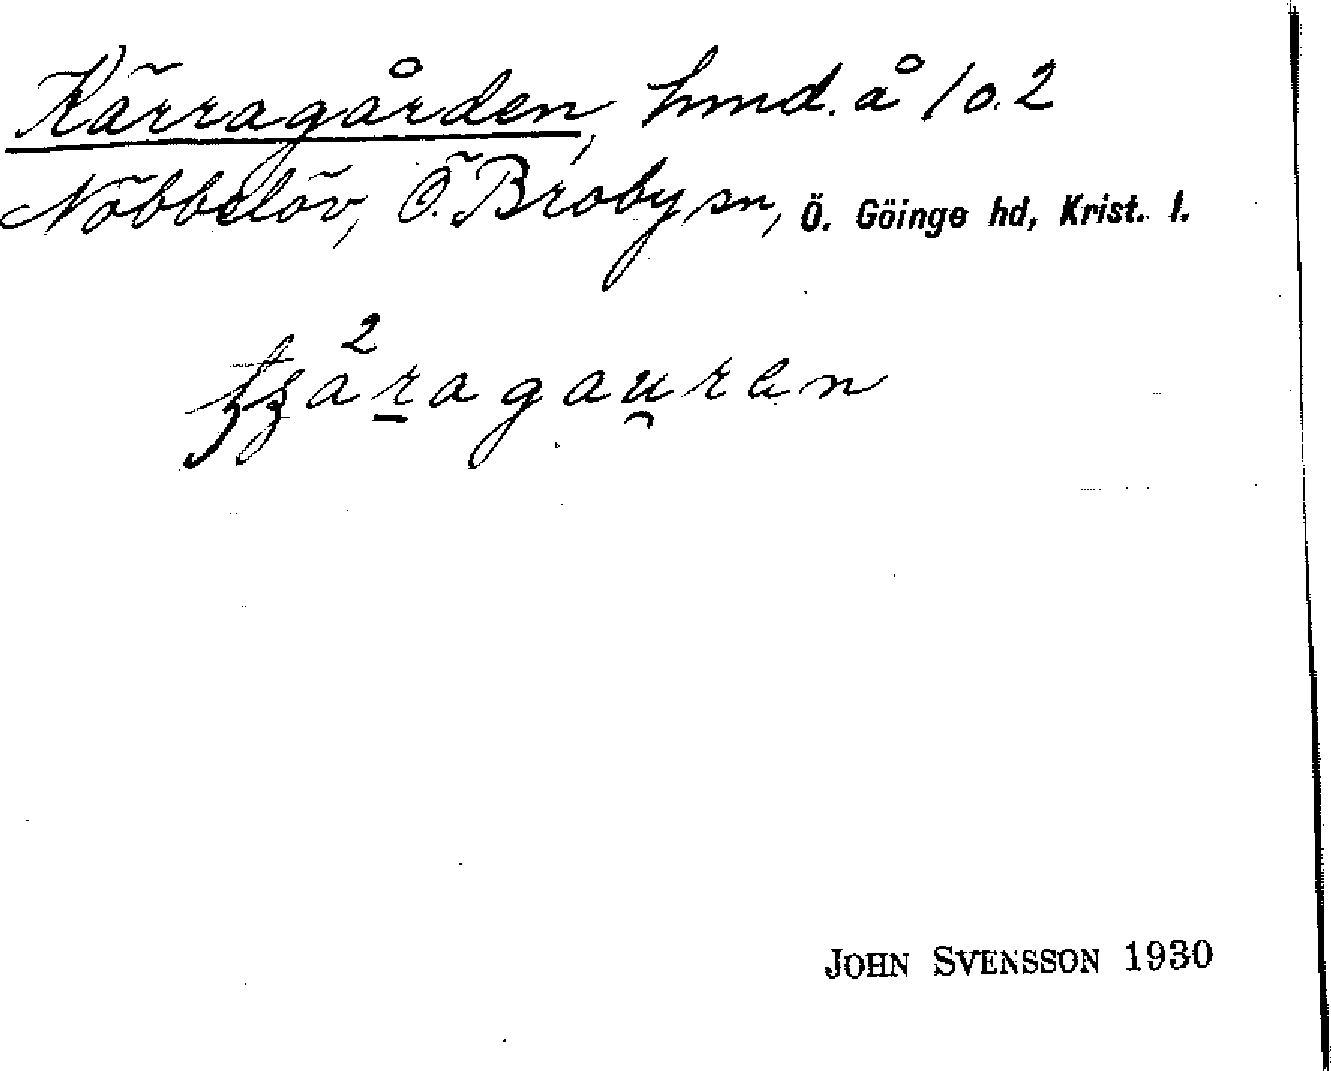 Kärragården, hmd. å 1 o. 2
Nöbbelöv, Ö. Broby sn, Ö. Göinge hd, Krist. l.
JOHN SVENSSON 1930